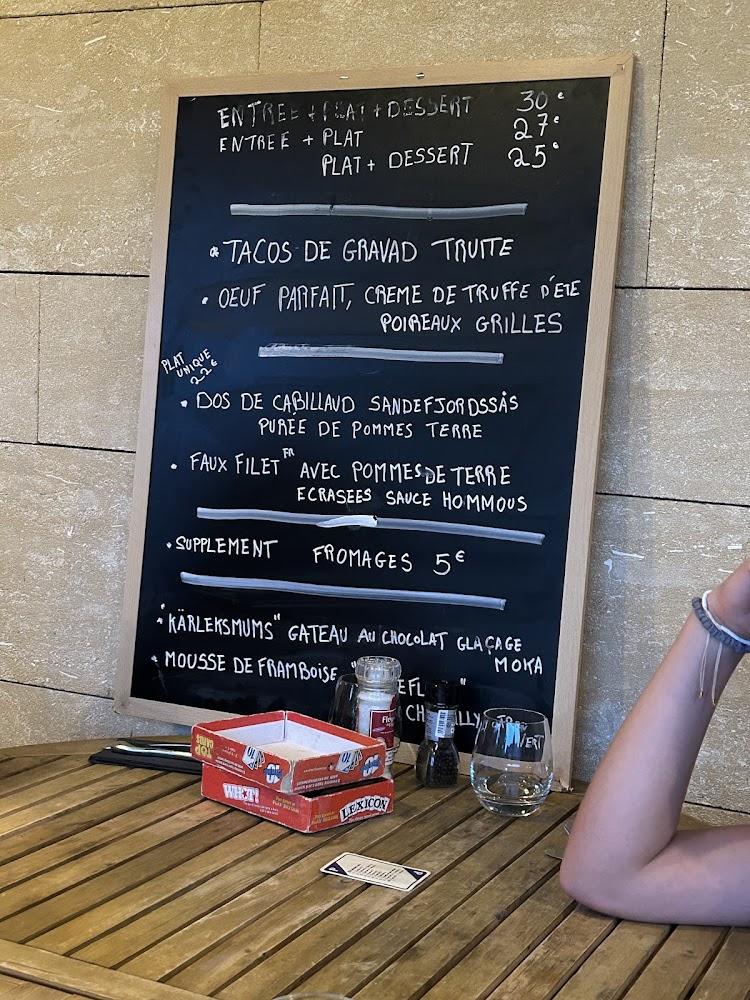 ENTREE + PLAT + DESSERT 30€
ENTREE + PLAT 27€
PLAT + DESSERT 25€
TACOS DE GRAVAD TRUITE
OEUF PARFAIT, CREME DE TRUFFE D'ÉTE
POIREAUX GRILLES
PLAT
UNIQUE
22€
DOS DE CABILLAUD SANDEFJORDSSÅS
PURÉE DE POMMES TERRE
FAUX FILET FR AVEC POMMES DE TERRE
ECRASEES SAUCE HOMMOUS
SUPPLEMENT FROMAGES 5€
"KÄRLEKSMUMS" GATEAU AU CHOCOLAT GLAÇAGE
MOKA
MOUSSE DE FRAMBOISE
VERT
WHOT!
LEXICON